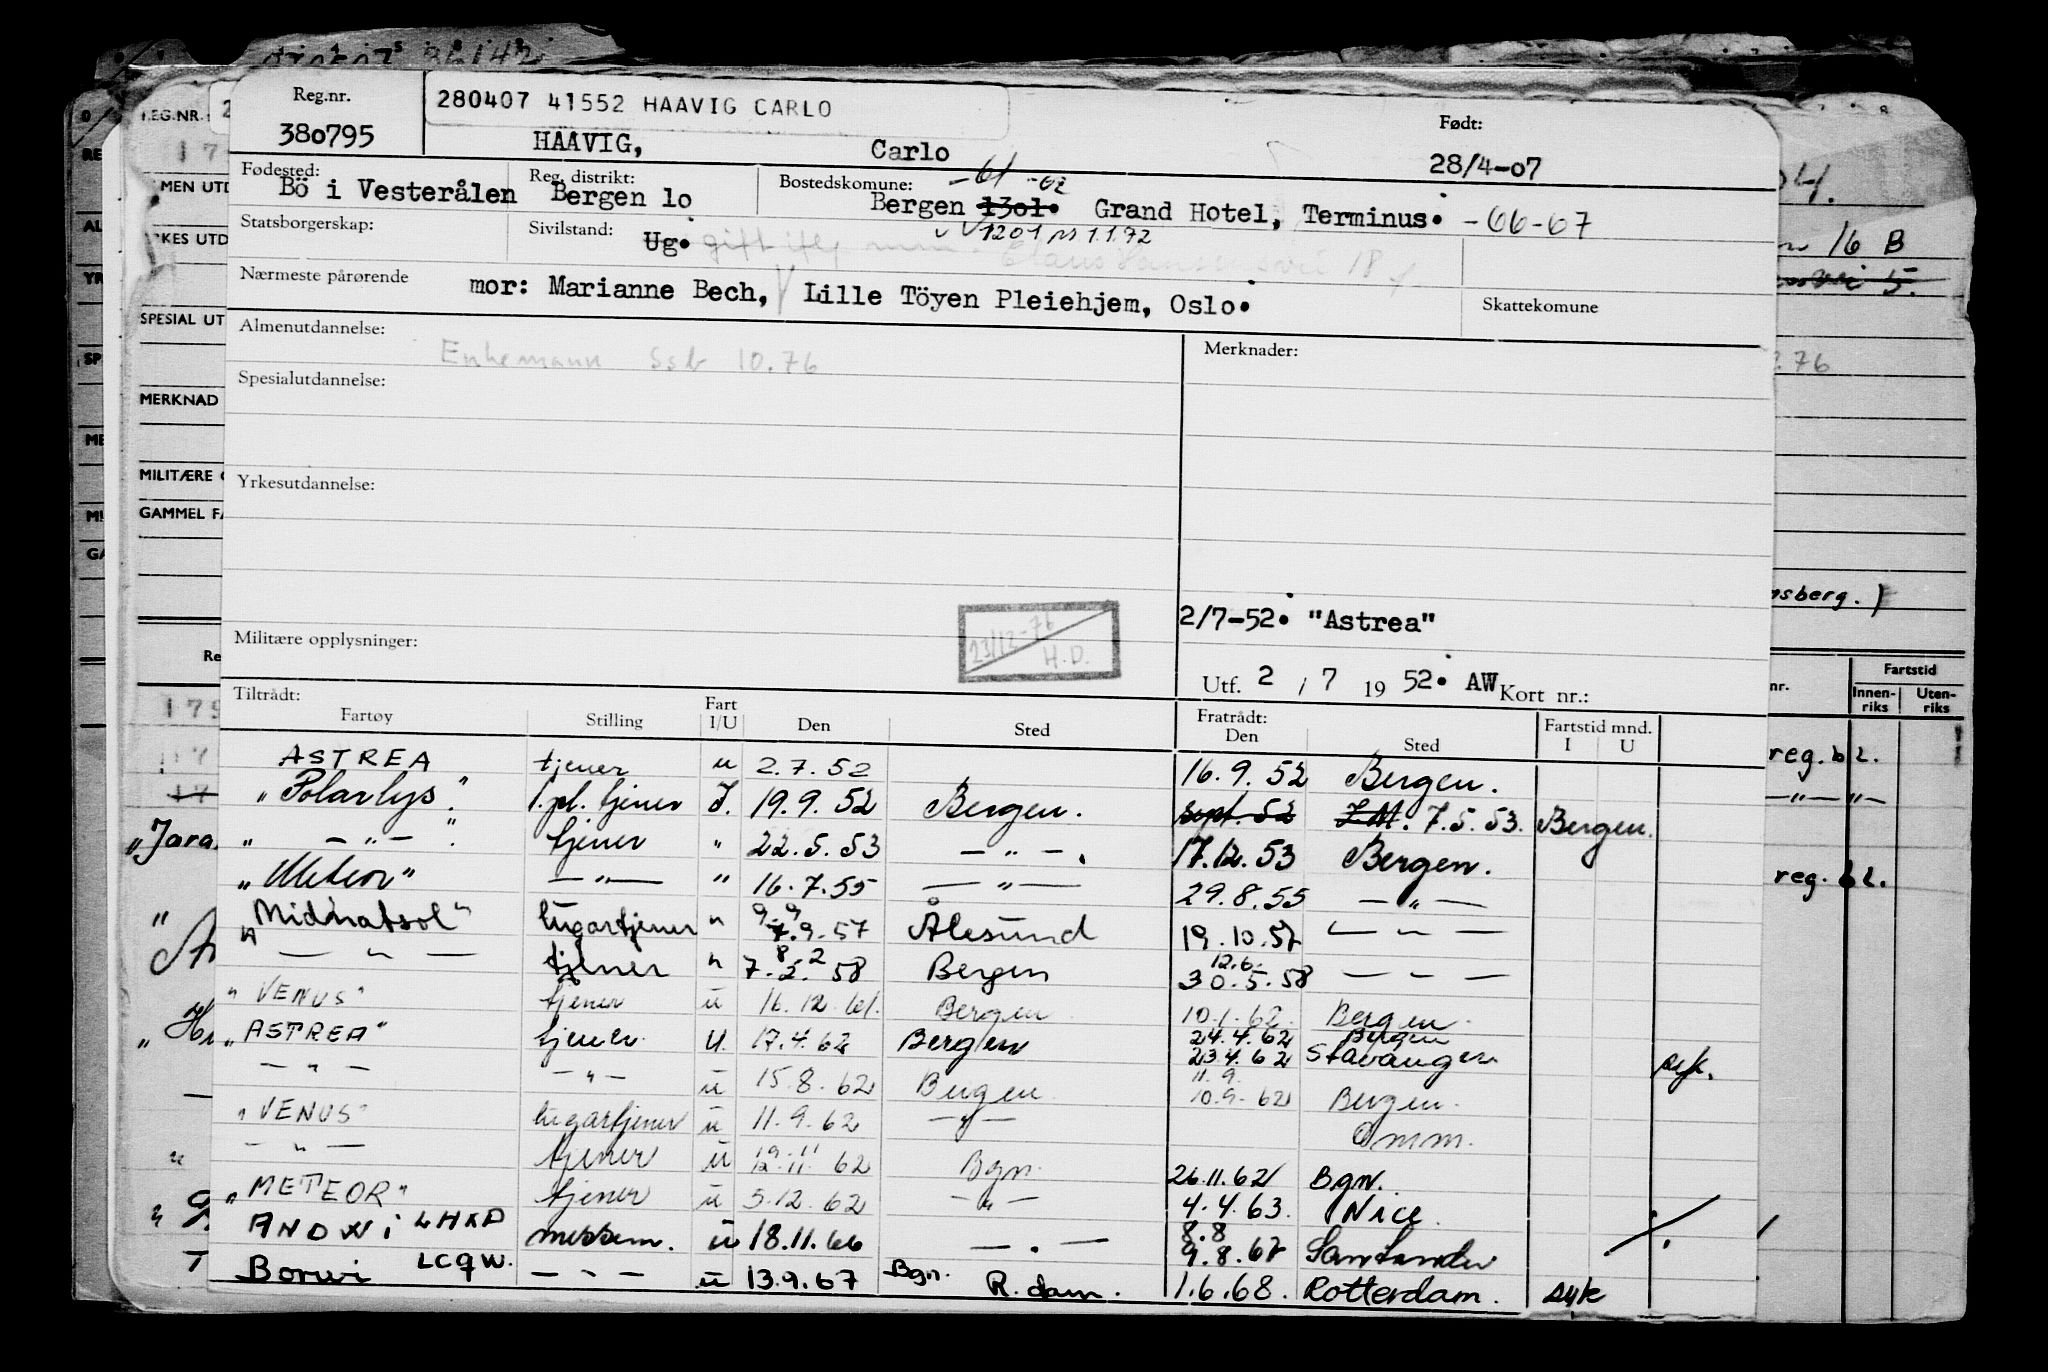 Reg.nr.
380795
280407 41552 HAAVIG CARLO
HAAVIG, Carlo
Født:
28/4-07
Fødested:
Bö i Vesterålen
Reg. distrikt:
Bergen 10
Bostedskommune: -61 -62
Bergen 1301. Grand Hotel, Terminus. -66-67
1201 pr 1.1.72
Statsborgerskap:
Sivilstand:
Ug. gift iflg
Nærmeste pårørende
mor: Marianne Bech, Lille Töyen Pleiehjem, Oslo.
Skattekomune
Almenutdannelse:
Enkemann Ssb 10.76
Merknader:
Spesialutdannelse:
Yrkesutdannelse:
2/7-52. "Astrea"
Militære opplysninger:
23/12-76
H.D.
Utf. 2 / 7 19 52. AW Kort nr.:
Tiltrådt:
Fartøy Stilling Fart I/U Den Sted Fratrådt: Den Sted Fartstid mnd. I U
ASTREA tjener u 2.7.52 16.9.52 Bergen.
"Polarlys". 1.pl. tjener I. 19.9.52 Bergen. sept. 52 7.5.53. Bergen.
" — " — ". tjener " 22.5.53 — " —. 17.12.53 Bergen.
"Meteor" — " — " 16.7.55 — " — 29.8.55 — " —
"Midnatsol" lugartjener " 9.9 7.9.57 Ålesund 19.10.57 — " —
— " — tjener " 8.2 7.2.58 Bergen 12.6. 30.5.58 — — —
"VENUS" tjener u 16.12.61. Bergen 10.1.62. Bergen.
"ASTREA" tjener U. 17.4.62 Bergen 24.4.62 Bergen
23.4.62 Stavanger syk.
— " — — " — u 15.8.62 Bergen 11.9. 10.9.62 Bergen.
"VENUS" lugartjener u 11.9.62 — " — Omm.
— " — tjener u 19.11 12.11.62 Bgn. 26.11.62 Bgn.
"METEOR" tjener u 5.12.62 — " — 4.4.63. Nice.
ANDWI LHXP messem. u 18.11.66 — . — 8.8 9.8.67 Santander
Borwi LCQW. — " — u 13.9.67 Bgn. R.dam. 1.6.68. Rotterdam. syk
REG.NR.
SPESIAL UT
MERKNAD
MILITÆRE
GAMMEL FA
"Jara
16 B
5.
.76
sberg.)
Fartstid
nr. Innen-riks Uten-riks
reg. b 2.
— " — " —
reg. b 2.